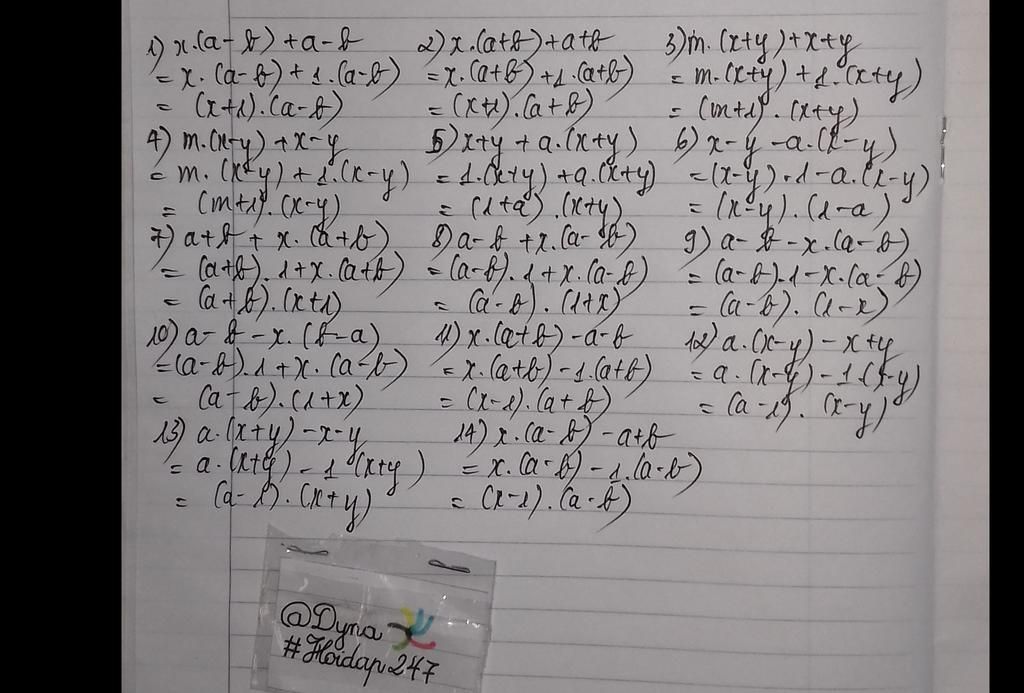 1) x.(a-b)+a-b 2) x.(a+b)+a+b 3) m.(x+y)+x+y
= x.(a-b)+1.(a-b) =x.(a+b)+1.(a+b) = m.(x+y)+1.(x+y)
= (x+1).(a-b) = (x+1).(a+b) = (m+1).(x+y)
4) m.(x-y)+x-y 5) x+y+a.(x+y) 6) x-y-a.(x-y)
= m.(x-y)+1.(x-y) = 1.(x+y)+a.(x+y) =(x-y).1-a.(x-y)
= (m+1).(x-y) = (1+a).(x+y) = (x-y).(1-a)
7) a+b+x.(a+b) 8) a-b+x.(a-b) 9) a-b-x.(a-b)
= (a+b).1+x.(a+b) =(a-b).1+x.(a-b) = (a-b).1-x.(a-b)
= (a+b).(x+1) = (a-b).(1+x) = (a-b).(1-x)
10) a-b-x.(b-a) 11) x.(a+b)-a-b 12) a.(x-y)-x+y
=(a-b).1+x.(a-b) = x.(a+b)-1.(a+b) = a.(x-y)-1.(x-y)
= (a-b).(1+x) = (x-1).(a+b) = (a-1).(x-y)
13) a.(x+y)-x-y 14) x.(a-b)-a+b
= a.(x+y)-1(x+y) = x.(a-b)-1.(a-b)
= (a-1).(x+y) = (x-1).(a-b)
@Dyna
#Hoidap247